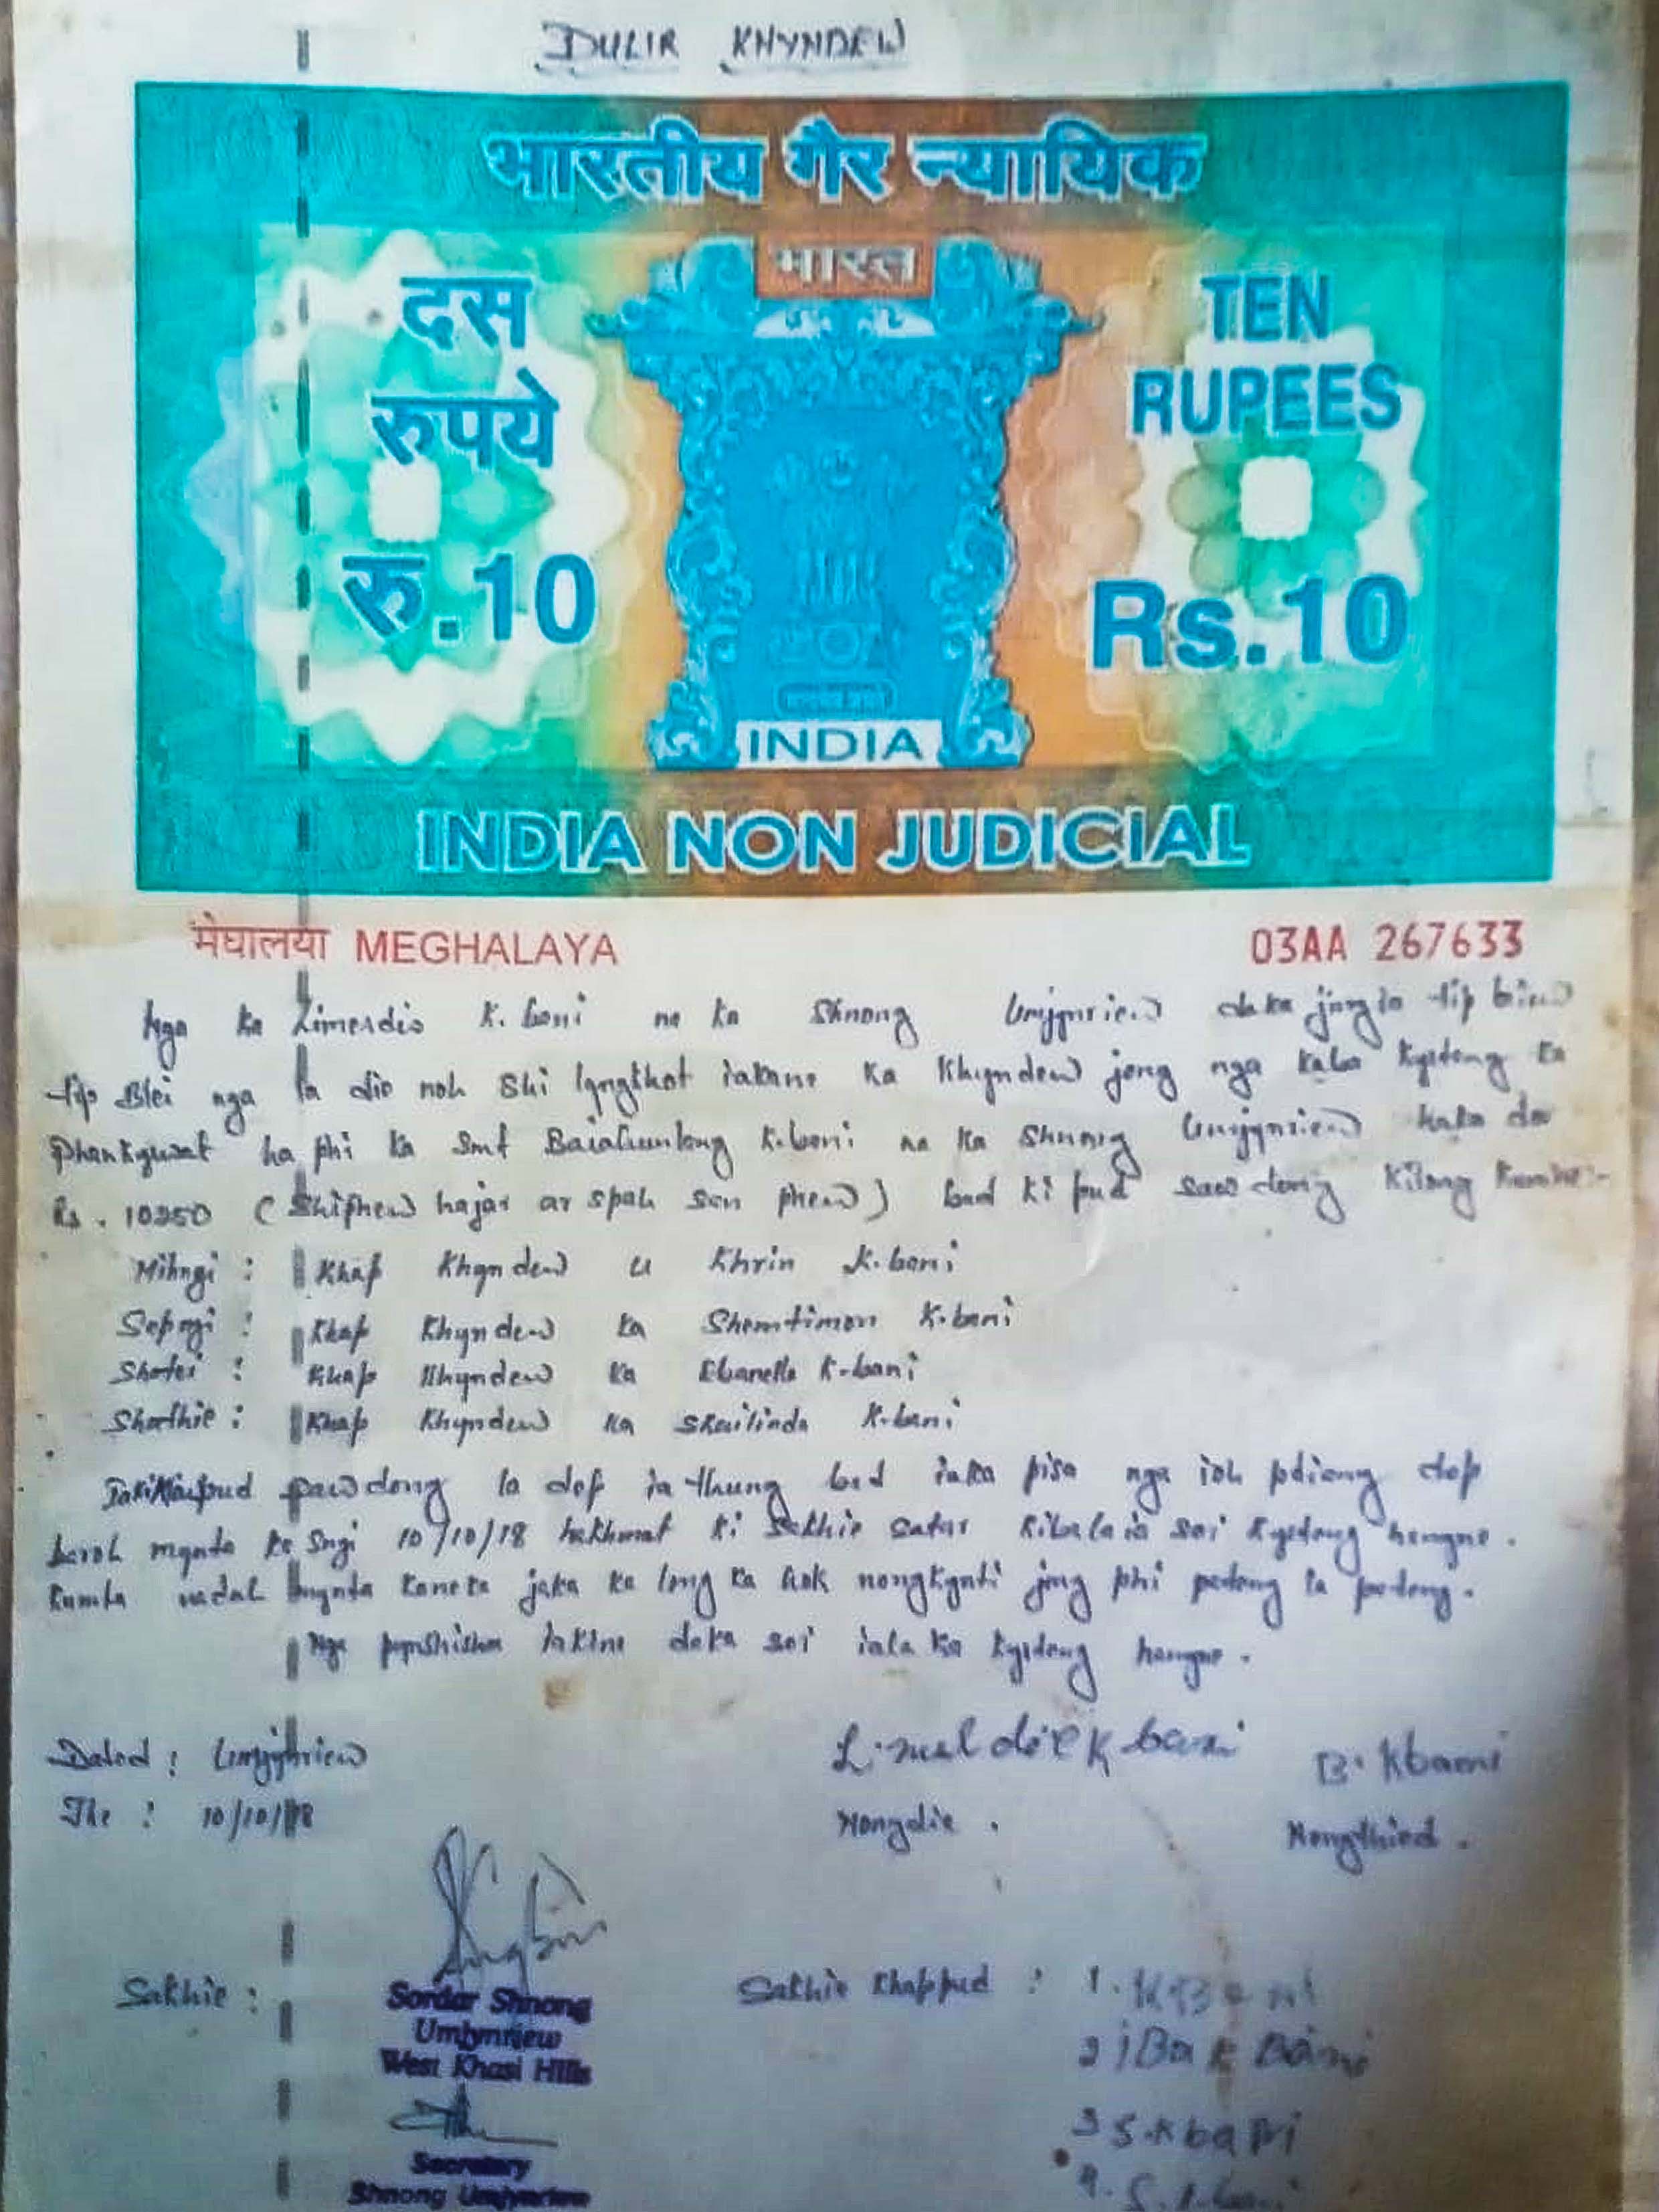 DULIR KHYNDEW
भारतीय गैर न्यायिक
भारत
दस
रुपये
रु.10
TEN
RUPEES
Rs.10
INDIA
INDIA NON JUDICIAL
मेघालया MEGHALAYA
03AA 267633
Nga ka K. bani na ka Shnong Umjynriew da ka jingïa tip briew
tip Blei nga la die noh Shi lyngkhot ïakane ka Khyndew jong nga kaba kyrteng ka
ha phi ka Smt K.bani na ka Shnong Umjynriew kata da
Rs. 10250 (Shiphew hajar ar spah san phew) bad ki pud sawdong kilong kumne:-
Mihngi : Khap Khyndew u Khrin K.bani
Sepngi : Khap Khyndew ka Shemtimon K.bani
Shatei : Khap Khyndew ka Ebanella K.bani
Shathie : Khap Khyndew ka Skailinda K.bani
sawdong la dep ïa thung bad ïaka pisa nga ioh pdiang dep
baroh mynta ka Sngi 10/10/18 hakhmat ki Sakhie Kibala ïa soi kyrteng harngne.
Kumta naduh mynta kane ka jaka ka long ka hok jong phi pateng la pateng.
Nga pynshisha ïakine da ka soi ïala ka kyrteng harngne.
Dated : Umjynriew
The : 10/10/18
B. Kbani
Nongdie.
Nongthied.
Sakhie :
Sordar Shnong
Umjynriew
West Khasi Hills
Secretary
Shnong Umjynriew
Sakhie Khappud : 1. K Bani
2 iBa K Bani
3 S.Kbani
4. S.